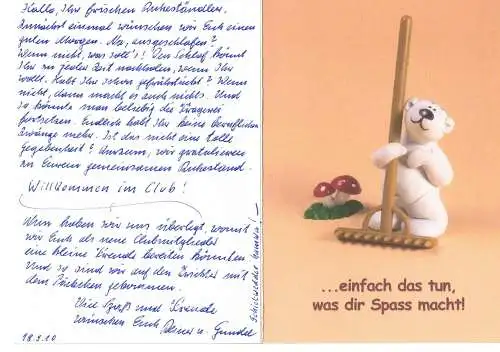 Hallo, Ihr frischen Ruheständler.
Zunächst einmal wünschen wir Euch einen
guten Morgen. Na, ausgeschlafen?
Wenn nicht, was soll's! Den Schlaf könnt
Ihr zu jeder Zeit nachholen, wenn Ihr
wollt. Habt Ihr schon gefrühstückt? Wenn
nicht, dann macht es auch nichts. Und
so könnte man beliebig die Fragerei
fortsetzen. Endlich habt Ihr keine beruflichen
Zwänge mehr. Ist das nicht eine tolle
Gegebenheit? Umsum, wir gratulieren
zu Eurem gemeinsamen Ruhestand.
Willkommen im Club!
Nun haben wir uns überlegt, womit
wir Euch als neue Clubmitglieder
eine kleine Freude bereiten könnten.
Und so sind wir auf den Trichter mit
dem Päckchen gekommen.
Viel Spaß und Freude
wünschen Euch u. Gundel
18.5.10
...einfach das tun,
was dir Spass macht!